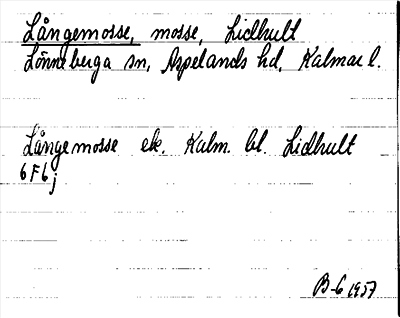 Långemosse, mosse, Lidhult
Lönneberga sn, Aspelands hd, Kalmar l.
Långemosse ek. Kalm. bl. Lidhult
6F6j
B-G 1957